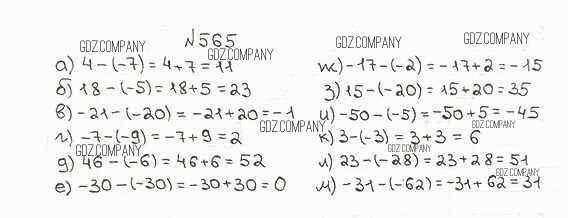 №565
а) 4-(-7)=4+7=11
б) 18-(-5)=18+5=23
в) -21-(-20)=-21+20=-1
г) -7-(-9)=-7+9=2
д) 46-(-6)=46+6=52
е) -30-(-30)=-30+30=0
ж) -17-(-2)=-17+2=-15
з) 15-(-20)=15+20=35
и) -50-(-5)=-50+5=-45
к) 3-(-3)=3+3=6
л) 23-(-28)=23+28=51
м) -31-(-62)=-31+62=31
GDZ.COMPANY
GDZ.COMPANY
GDZ.COMPANY
GDZ.COMPANY
GDZ.COMPANY
GDZ.COMPANY
GDZ.COMPANY
GDZ.COMPANY
GDZ.COMPANY